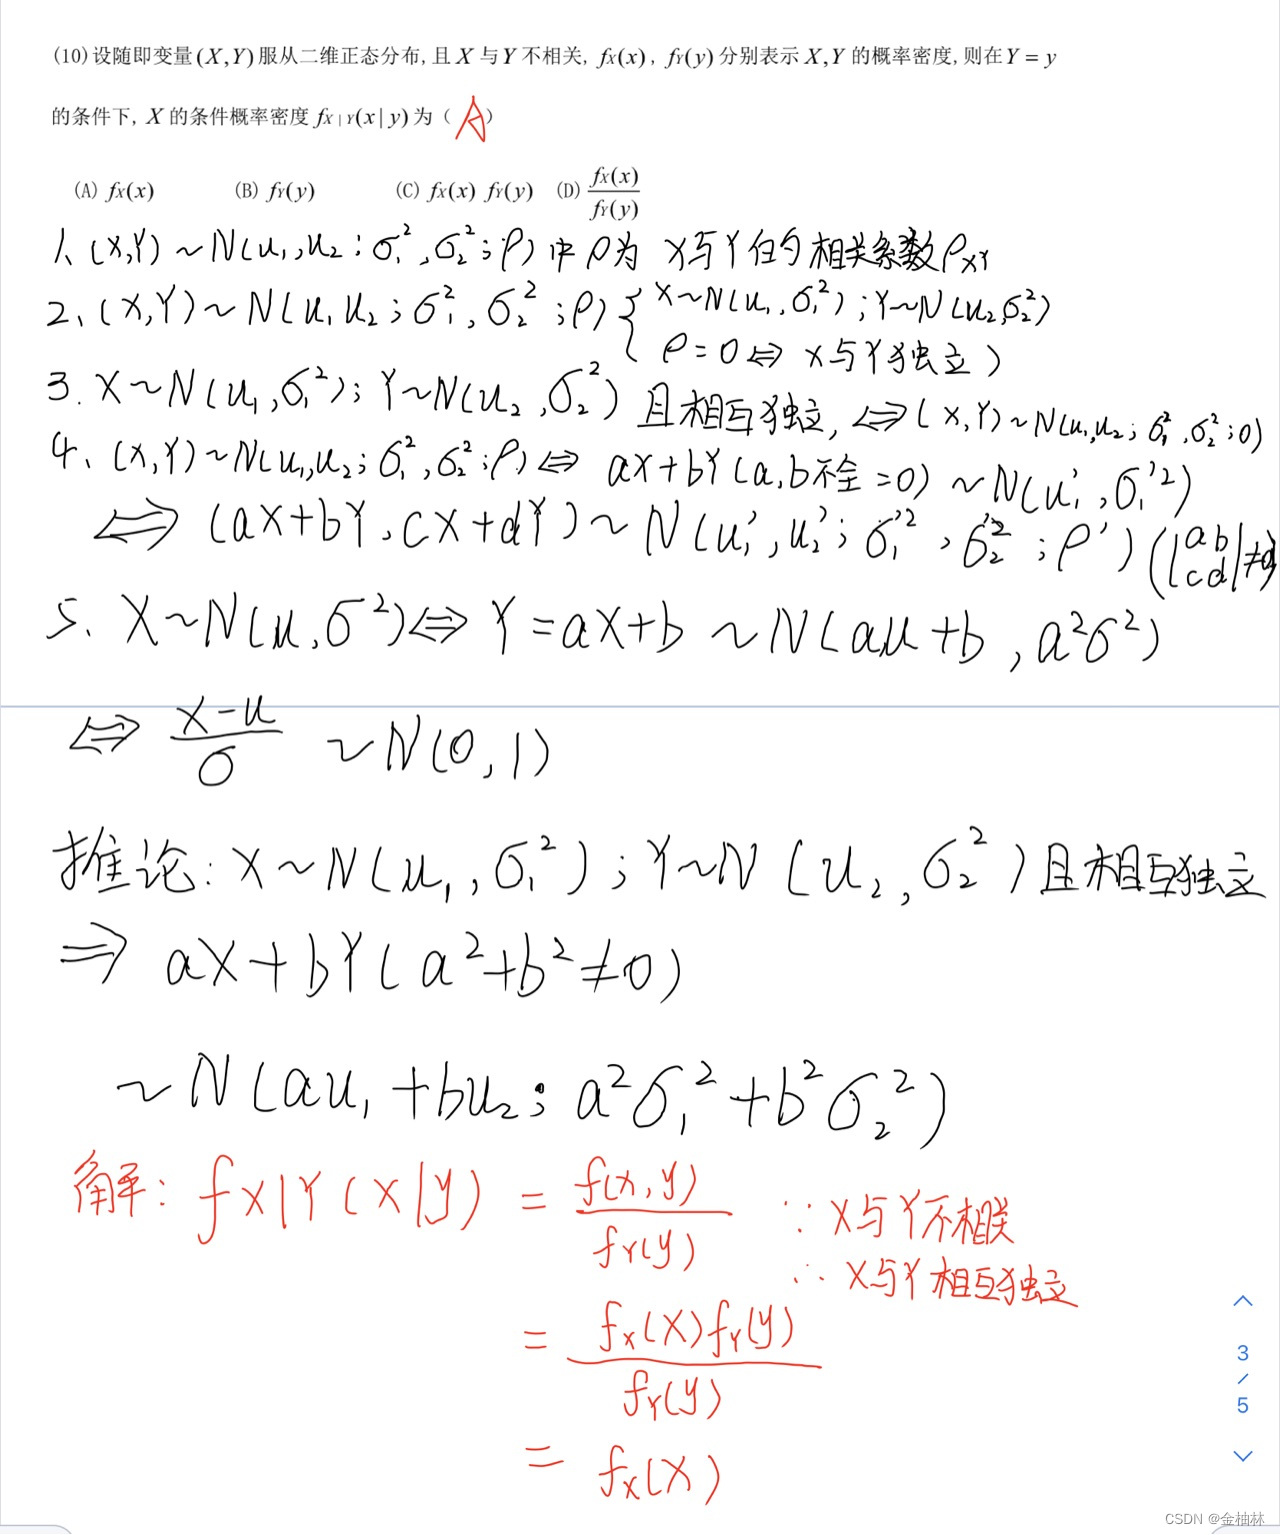 (10)设随即变量(X,Y)服从二维正态分布,且X与Y不相关, fX(x), fY(y)分别表示X,Y的概率密度,则在Y=y
的条件下, X的条件概率密度fX|Y(x|y)为( A )
(A) fX(x) (B) fY(y) (C) fX(x) fY(y) (D) fX(x)/fY(y)
1、(X,Y)~N(u₁,u₂;σ₁²,σ₂²;ρ)中ρ为 X与Y的相关系数ρXY
2、(X,Y)~N(u₁u₂;σ₁²,σ₂²;ρ){X~N(u₁,σ₁²);Y~N(u₂,σ₂²)
ρ=0⇔X与Y独立)
3. X~N(u₁,σ₁²);Y~N(u₂,σ₂²)且相互独立,⇔(X,Y)~N(u₁,u₂;σ₁²,σ₂²;0)
4、(X,Y)~N(u₁,u₂;σ₁²,σ₂²;ρ)⇔aX+bY(a,b不全=0)~N(u₁',σ₁'²)
⇔(aX+bY,cX+dY)~N(u₁',u₂';σ₁'²,σ₂'²;ρ')(|ab cd|≠0)
5. X~N(u,σ²)⇔Y=aX+b~N(au+b,a²σ²)
⇔ (X-u)/σ ~N(0,1)
推论:X~N(u₁,σ₁²);Y~N(u₂,σ₂²)且相互独立
⇒ aX+bY(a²+b²≠0)
~N(au₁+bu₂;a²σ₁²+b²σ₂²)
解:fX|Y(X|y) = f(x,y)/fY(y) ∵X与Y不相关
∴X与Y相互独立
= fX(X)fY(y)/fY(y)
= fX(X)
3
/
5
CSDN @金柚林